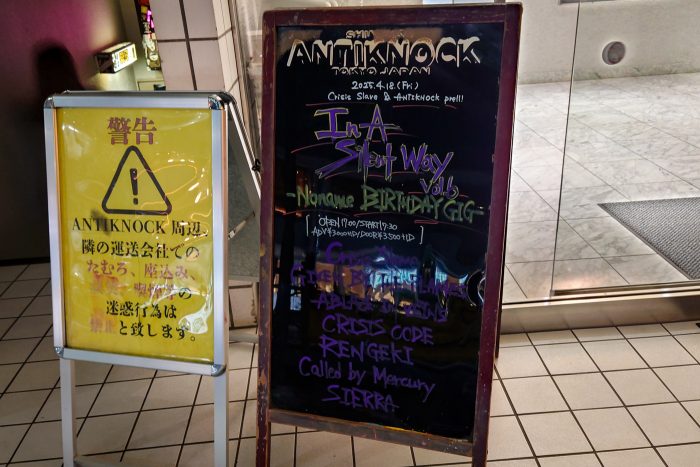 警告
ANTIKNOCK 周辺、
隣の運送会社での
たむろ、座込み、
の
迷惑行為は
禁止と致します。
SHIN
ANTIKNOCK
TOKYO JAPAN
2025.4.18.(Fri)
Crisis Slave & ANTIKNOCK pre!!!
In A
Silent Way
Vol.6
-Noname BIRTHDAY GIG-
OPEN 17:00/START 17:30
ADV ¥3000+1D/DOOR ¥3500+1D
Crisis
GIVEN BY THE FLAMES
CRISIS CODE
RENGEKI
Called by Mercury
SIERRA